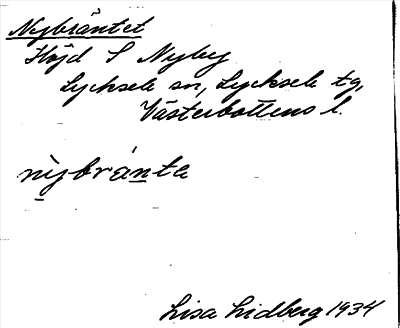 Nybräntet
Höjd S Nyby
Lycksele sn, Lycksele tg,
Västerbottens l.
nỳbrántɐ
Lisa Lidberg 1934